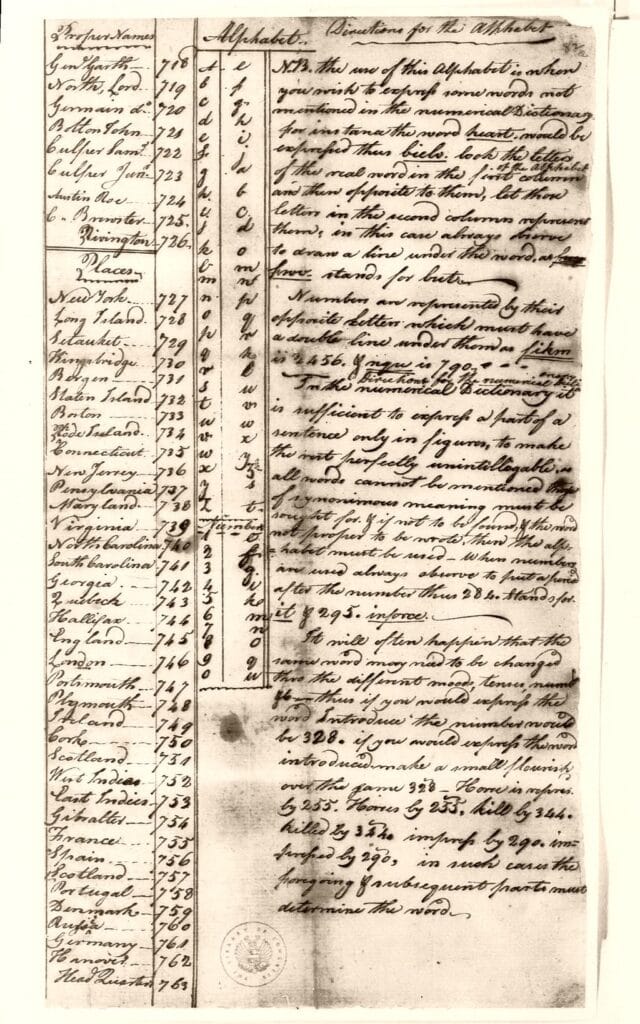 Proper Names
Gen.l Garth 718
North, Lord 719
Germain do. 720
Bolton John 721
Culper Saml. 722
Culper Junr. 723
Austin Roe 724
C. Brewster 725.
Rivington 726.
Places
New York 727
Long Island 728
Setauket 729
Kingsbridge 730
Bergen 731
Staten Island 732
Boston 733
Rode Island 734
Connecticut 735
New Jersey 736
Pensylvania 737
Maryland 738
Virginia 739
North Carolina 740
South Carolina 741
Georgia 742
Quebeck 743
Hallifax 744
England 745
London 746
Portsmouth 747
Plymouth 748
Ireland 749
Corke 750
Scotland 751
West Indies 752
East Indies 753
Gibralter 754
France 755
Spain 756
Scotland 757
Portugal 758
Denmark 759
Russia 760
Germany 761
Hanover 762
Head Quarters 763
Alphabet
a e
b f
c g
d h
e i
f j
g a
h b
i c
j d
k o
l m
m n
n p
o q
p r
q k
r l
s u
t v
u w
v x
w y
x z
y s
z t
Numbers
1 e
2 f
3 g
4 i
5 k
6 m
7 n
8 o
9 q
0 u
Directions for the Alphabet
N.B. the use of this Alphabet is when
you wish to express some words not
mentioned in the numerical Dictionary
for instance the word heart. would be
expressed thus bielv. look the letters
of the real word in the first column of the Alphabet
and then opposite to them, let those
letters in the second column represent
them; in this case always observe
to draw a line under the word, as
fwv. stands for but.
Numbers are represented by their
opposite letters which must have
a double line under them as fikm
is 2456. & nqu is 790.
Directions for the numerical
In the numerical Dictionary it
is sufficient to express a part of a
sentence only in figures, to make
the rest perfectly unintellegable, as
all words cannot be mentioned those
of synonimous meaning must be
sought for. & if not to be found, & the word
not proper to be wrote, then the alp-
habet must be used — When numbers
are used always observe to put a period
after the number thus 284. stands for
it & 295. inforce.
It will often happen that the
same word may need to be changed
thro the different moods, tenses numb
thus if you would express the
word Introduce the number would
be 328. if you would express the word
introduced make a small flourish
over the same 328 — Horse is repres.
by 255. Horses by 255. kill by 344.
killed by 344. impress by 290. im-
pressed by 290, in such cases the
foregoing & subsequent parts must
determine the word.